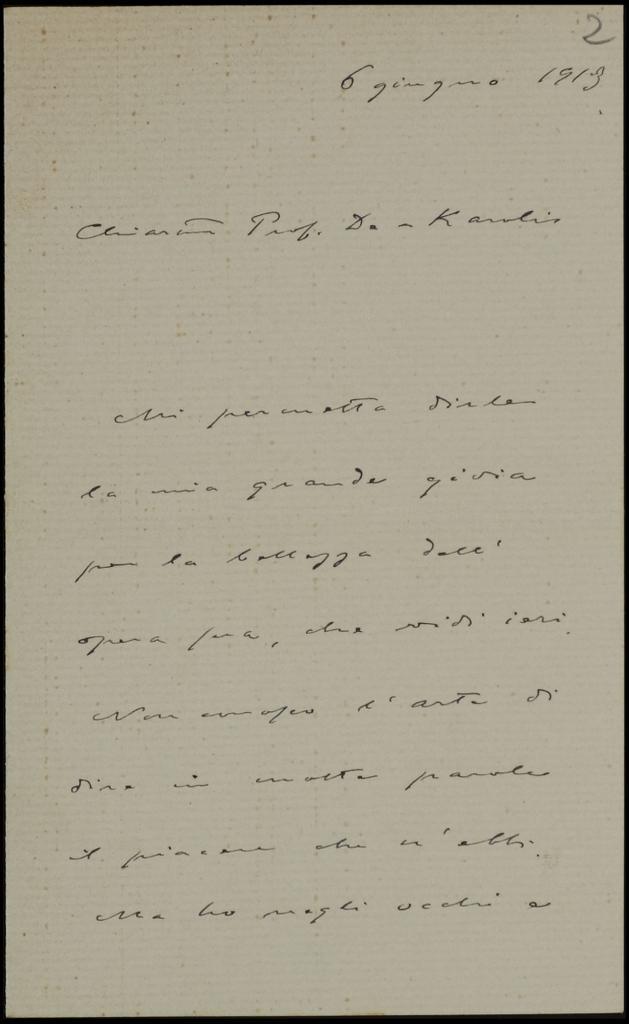 2
6 giugno 1913
Chiarmo Prof. De Karolis
Mi permetta dirle
la mia grande gioia
per la bellezza dell'
opera sua, che vidi ieri.
Non conosco l'arte di
dire in molte parole
il piacere che n'ebbi.
Ma ho negli occhi e